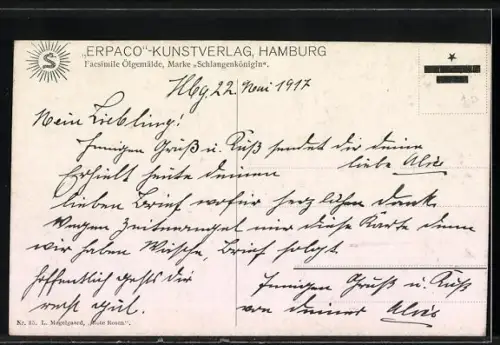 S
„ERPACO"-KUNSTVERLAG, HAMBURG
Facsimile Ölgemälde, Marke „Schlangenkönigin".
Hbg. 22. Mai 1917
Mein Liebling!
Innigen Gruß u. Kuß sendet dir deine
liebe
Erhielt heute deinen
lieben Brief wofür herzlichen Dank.
Wegen Zeitmangel nur diese Karte denn
wir haben Wäsche, Brief folgt.
Hoffentlich gehts dir
recht gut.
Innigen Gruß u. Kuß
von deiner
Nr. 85. L. Mogelgaard, „Rote Rosen".